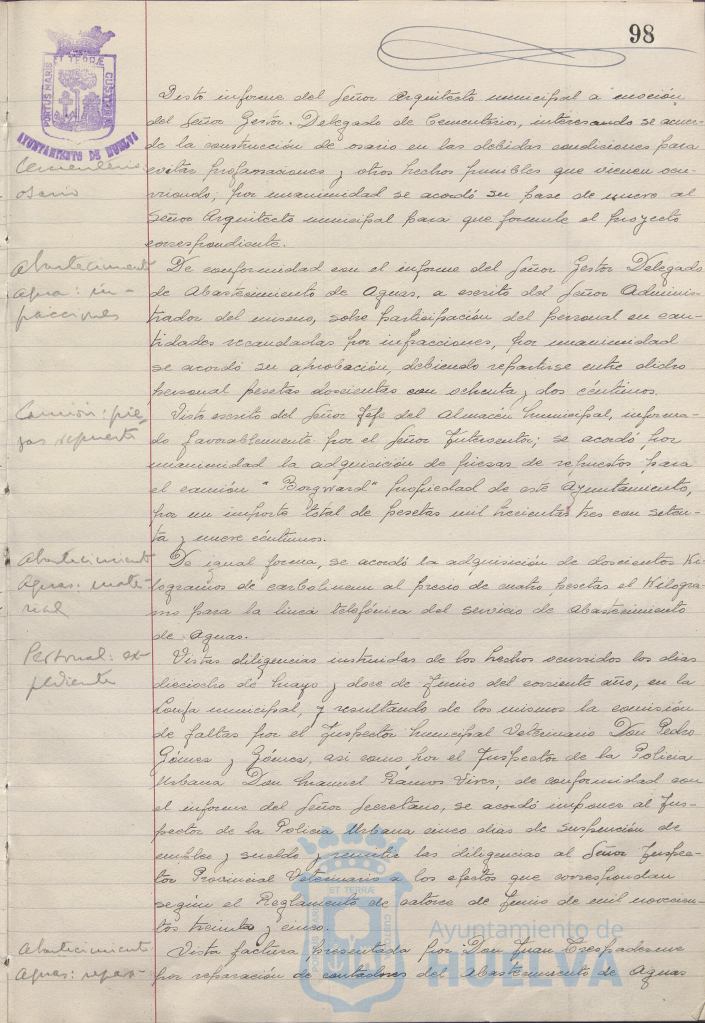 98
PORTUS MARIS ET TERRÆ CUSTODIA
AYUNTAMIENTO DE HUELVA
Visto informe del Señor Arquitecto municipal a moción
del Señor Gestor-Delegado de Cementerios, interesando se acuer-
de la construcción de osario en las debidas condiciones para
Cementerio: evitar profanaciones y otros hechos punibles que vienen ocu-
osario rriendo; por unanimidad se acordó su pase de nuevo al
Señor Arquitecto municipal para que formule el proyecto
correspondiente.
Abastecimiento De conformidad con el informe del Señor Gestor Delegado
agua: in- de Abastecimiento de Aguas, a escrito del Señor Adminis-
fracciones trador del mismo, sobre participación del personal en can-
tidades recaudadas por infracciones, por unanimidad
se acordó su aprobación, debiendo repartirse entre dicho
personal pesetas doscientas con ochenta y dos céntimos.
Camión: pie- Visto escrito del Señor Jefe del Almacén Municipal, informa-
zas repuesto do favorablemente por el Señor Interventor; se acordó por
unanimidad la adquisición de piezas de repuestos para
el camión "Borgward" propiedad de este Ayuntamiento,
por un importe total de pesetas mil trescientas tres con seten-
ta y nueve céntimos.
Abastecimiento De igual forma, se acordó la adquisición de doscientos Ki-
Aguas: mate- logramos de carbolineum al precio de cuatro pesetas el Kilogra-
rial mo para la línea telefónica del servicio de Abastecimiento
de Aguas.
Personal: ex- Vistas diligencias instruidas de los hechos ocurridos los días
pediente dieciocho de Mayo y doce de Junio del corriente año, en la
Lonja municipal, y resultando de los mismos la comisión
de faltas por el Inspector Municipal Veterinario Don Pedro
Gómez y Gómez, así como por el Inspector de la Policía
Urbana Don Manuel Ramos Vives; de conformidad con
el informe del Señor Secretario, se acordó imponer al Ins-
pector de la Policía Urbana cinco días de suspensión de
empleo y sueldo y remitir las diligencias al Señor Inspec-
tor Provincial Veterinario a los efectos que correspondan
según el Reglamento de catorce de Junio de mil novecien-
tos treinta y cinco.
Abastecimiento Vista factura presentada por Don Juan Trespaderne
Aguas: repar- por reparación de contadores del Abastecimiento de Aguas
Ayuntamiento de
HUELVA